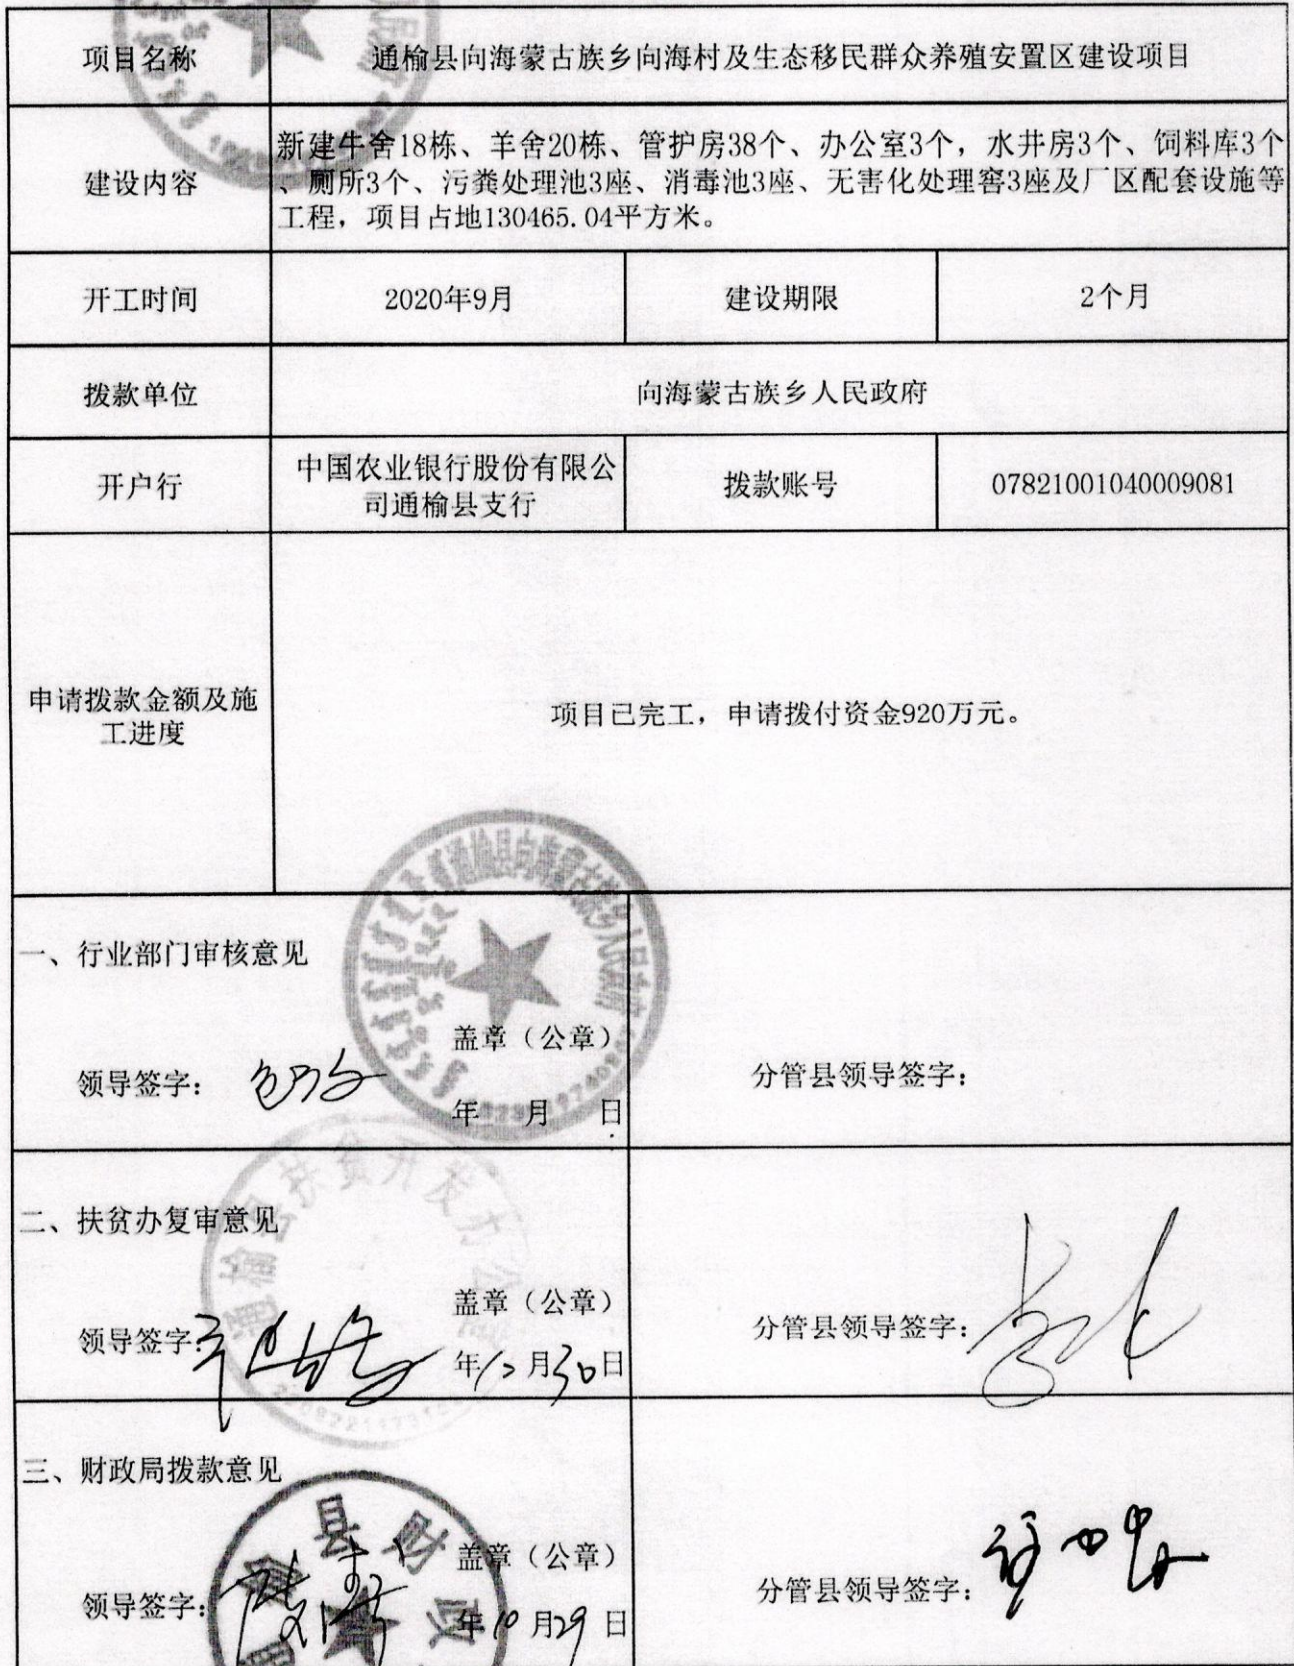 项目名称
通榆县向海蒙古族乡向海村及生态移民群众养殖安置区建设项目
建设内容
新建牛舍18栋、羊舍20栋、管护房38个、办公室3个，水井房3个、饲料库3个
、厕所3个、污粪处理池3座、消毒池3座、无害化处理窖3座及厂区配套设施等
工程，项目占地130465.04平方米。
开工时间
2020年9月
建设期限
2个月
拨款单位
向海蒙古族乡人民政府
开户行
中国农业银行股份有限公
司通榆县支行
拨款账号
07821001040009081
申请拨款金额及施
工进度
项目已完工，申请拨付资金920万元。
通榆县向海蒙古族乡人民政府
一、行业部门审核意见
盖章（公章）
领导签字：
年 月 日
分管县领导签字：
通榆县扶贫开发办公室
二、扶贫办复审意见
盖章（公章）
领导签字：
年 月30日
分管县领导签字：
三、财政局拨款意见
县财政
盖章（公章）
领导签字：
年10月29日
分管县领导签字：